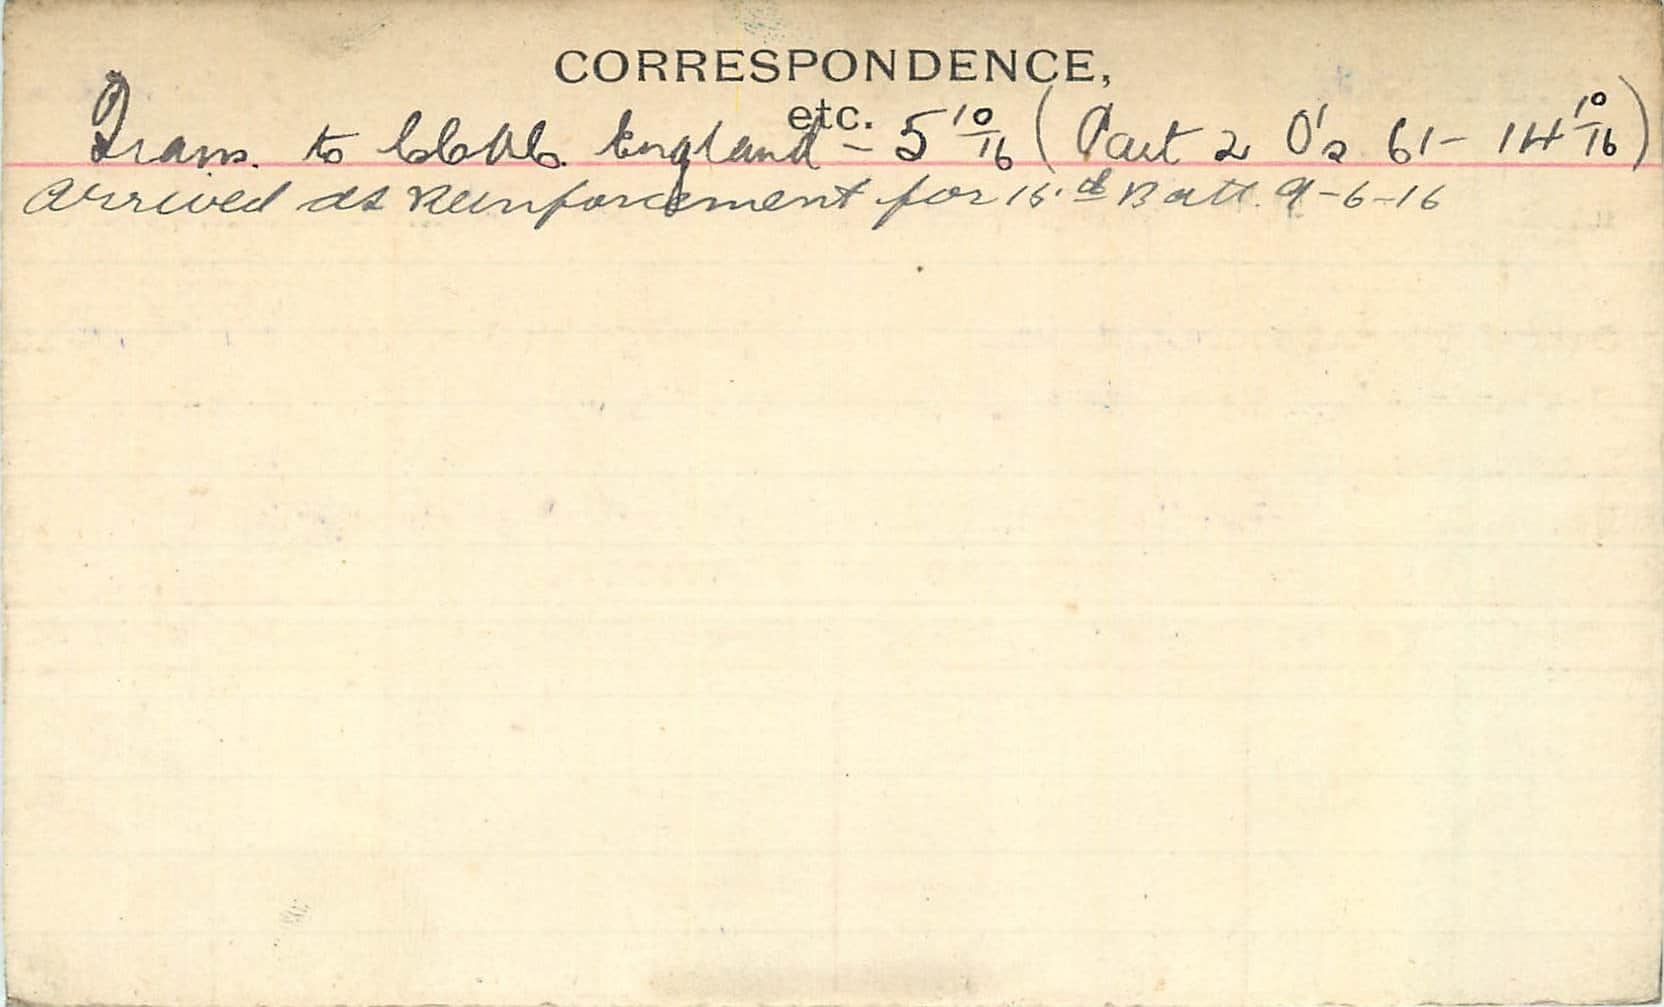 CORRESPONDENCE,
etc.
Trans. to England - 5 10/16 (Part 2 O's 61 - 14 10/16)
Arrived as Reinforcement for 15 Batt. 9-6-16